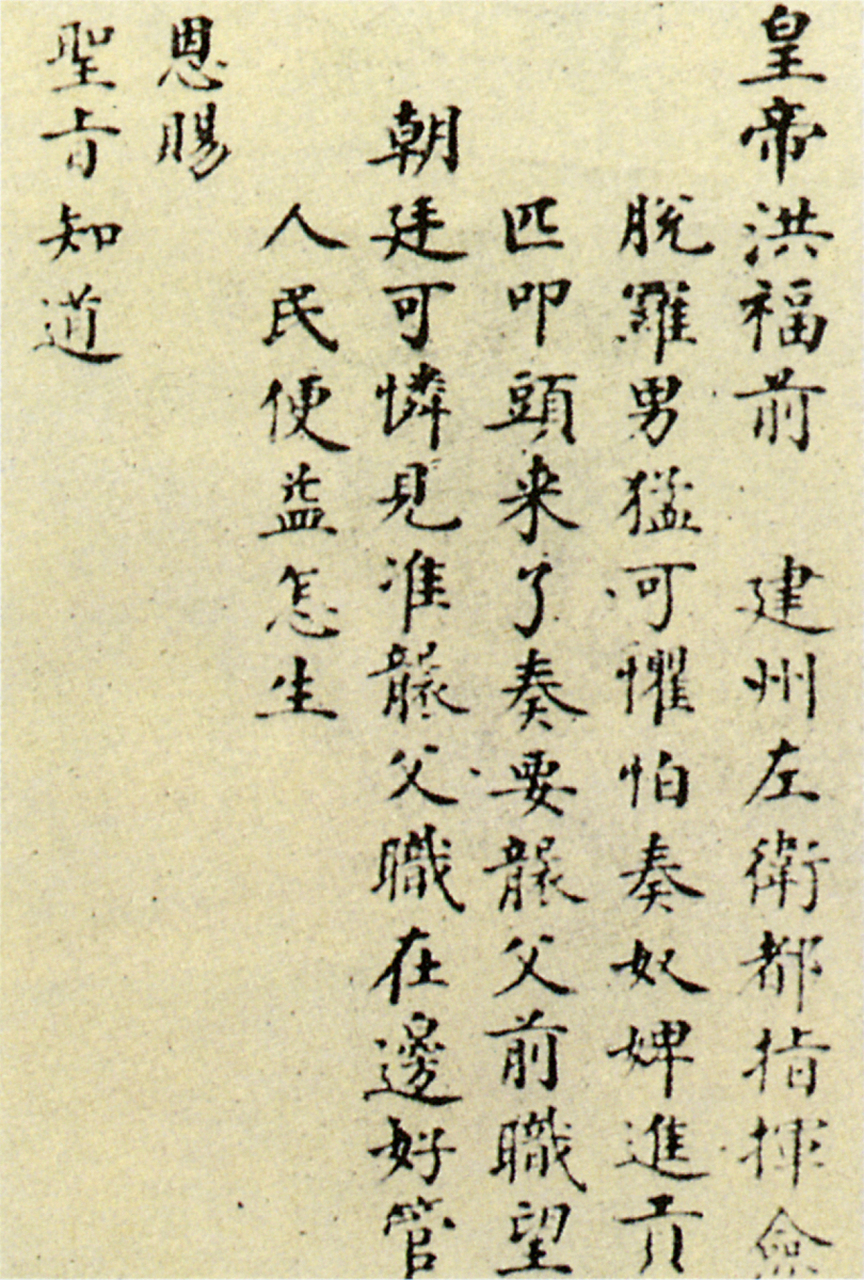 皇帝洪福前　建州左衛都指揮僉
脫羅男猛可懼怕奏奴婢進貢
匹叩頭来了奏要襲父前職望
朝廷可憐見准襲父職在邊好管
人民便益怎生
恩賜
聖旨知道